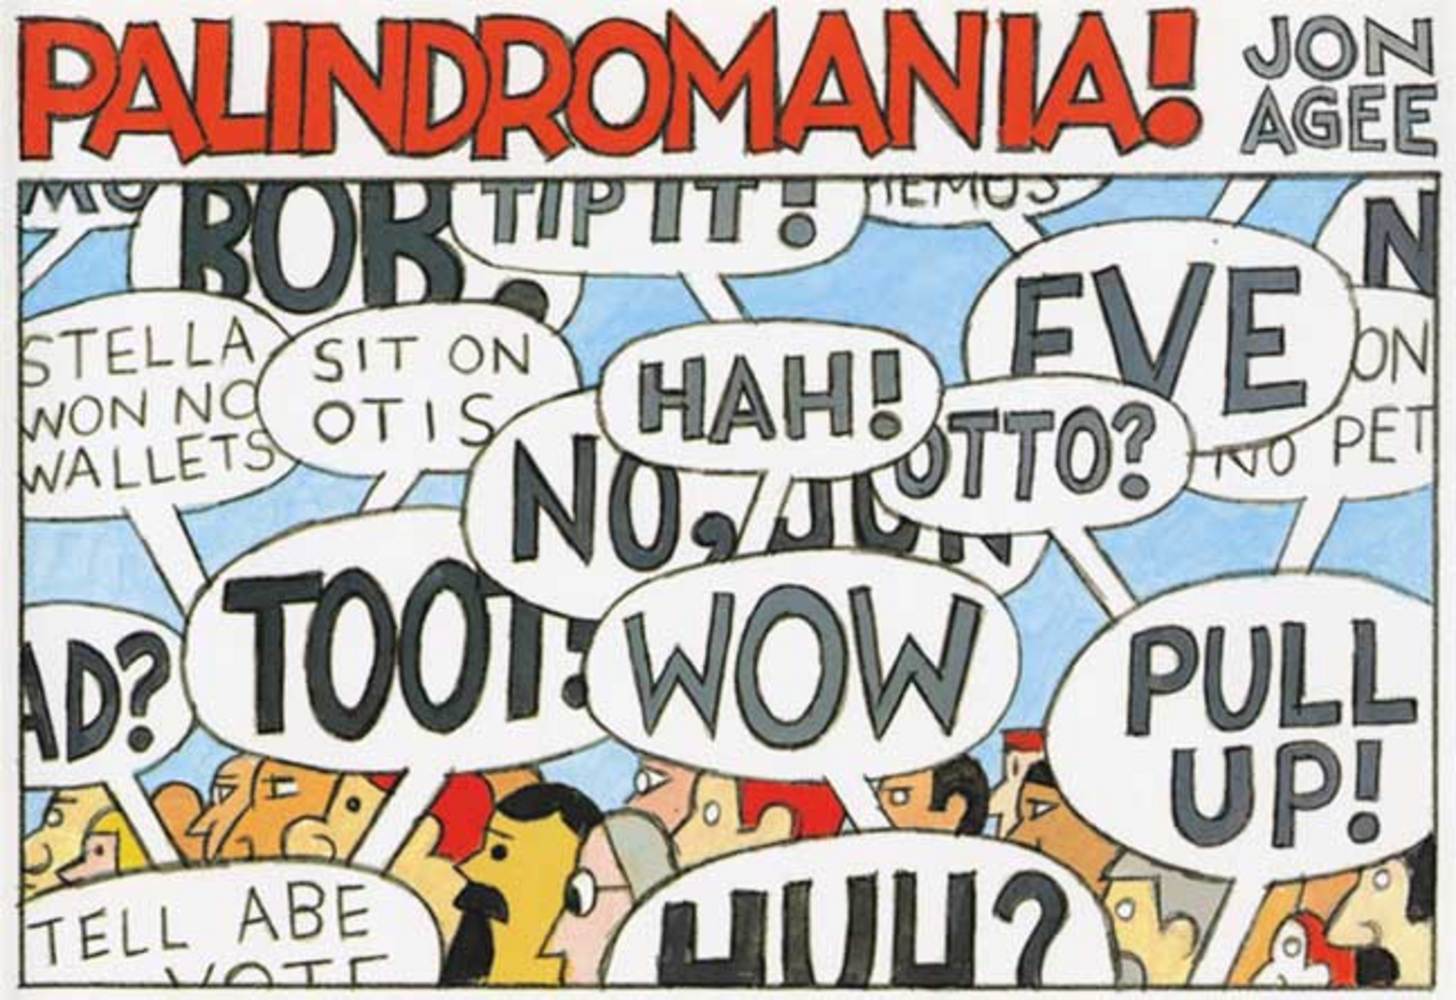 PALINDROMANIA!
JON
AGEE
BOB.
TIP IT!
REMUS
EVE
N
STELLA
WON NO
WALLETS
SIT ON
OTIS
HAH!
ON
NO PET
OTTO?
NO, JON
AD?
TOOT!
WOW
PULL
UP!
TELL ABE
VOTE
HUH?